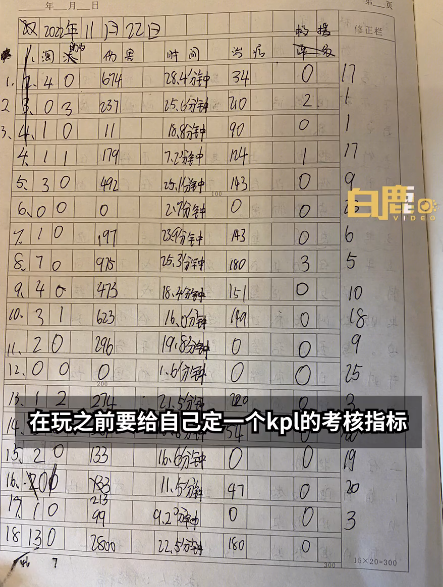 年 月 日 第 页
双 2022年11月22日 修正栏
淘汰 伤害 时间 治疗
1. 2 4 0 674 28.4分钟 34 0 17
2. 3 0 3 237 25.6分钟 210 2 1
3. 4 1 0 11 18.8分钟 90 0 1
4. 1 1 179 7.2分钟 124 1 17
5. 3 0 492 25.1分钟 143 0 9
白鹿
VIDEO
6. 0 0 0 2.7分钟 0 0
7. 1 0 197 23.9分钟 143 0 6
8. 7 0 975 25.3分钟 180 3 5
9. 4 0 473 18.4分钟 151 0 10
10. 3 1 623 16.0分钟 199 0 18
11. 2 0 296 19.8分钟 0 0 9
12. 0 0 0 1.6分钟 0 0 25
13. 1 2 274 21.5分钟 220 3
在玩之前要给自己定一个kpl的考核指标
14.
15. 2 0 133 16.6分钟 0 0 19
16. 2 0 183 11.5分钟 47 0 20
213
17. 1 0 99 9.2分钟 0 0 3
18 13 0 2800 22.5分钟 180 0
7
15×20=300